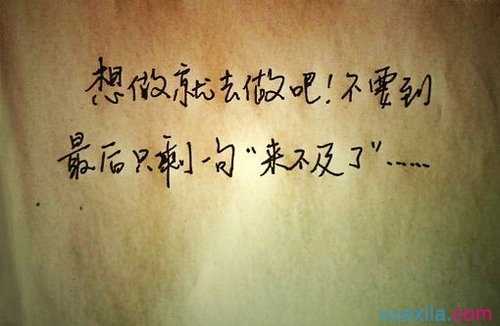 想做就去做吧！不要到
最后只剩一句“来不及了”……
xuexila.com